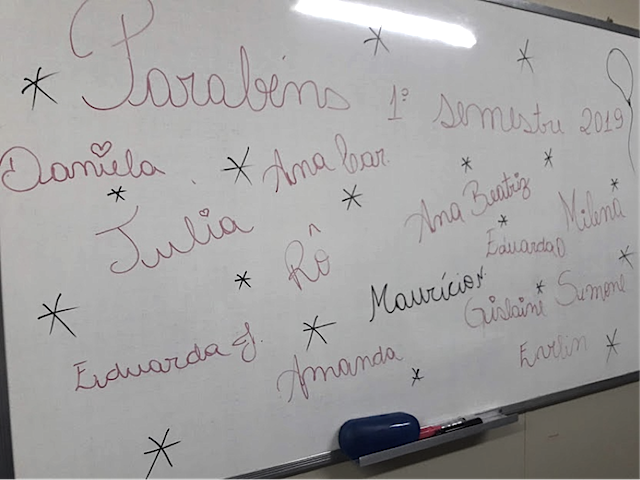 Parabéns 1º semestre 2019
Daniela Ana Car.
Julia Rô Ana Beatriz Milena
Eduarda O
Maurício Gislaine Simone
Eduarda J. Amanda Evelin